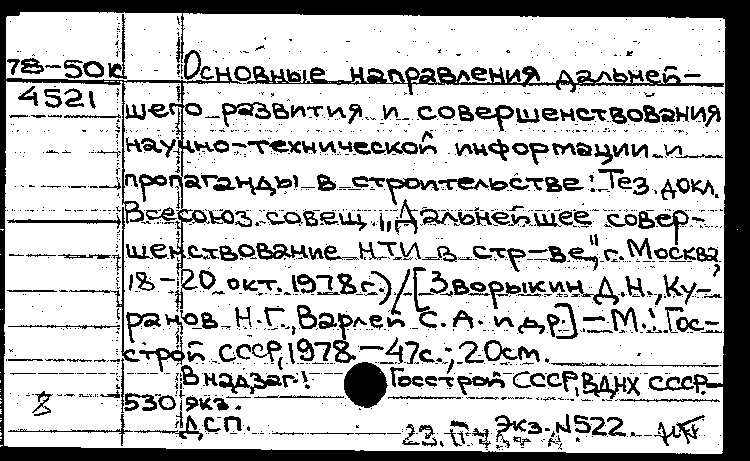 78-50к Основные направления дальней-
4521 шего развития и совершенствования
научно-технической информации и
пропаганды в строительстве: Тез. докл.
Всесоюз. совещ. „Дальнейшее совер-
шенствование НТИ в стр-ве", г. Москва,
18-20 окт. 1978 г.)/[Зворыкин Д.Н., Ку-
ранов Н.Г., Варлей С.А. и др] - М.: Гос-
строй СССР, 1978. - 47с.; 20см.
В надзаг: Госстрой СССР, ВДНХ СССР.-
8 530 экз.
ДСП. 23. Экз. N522.